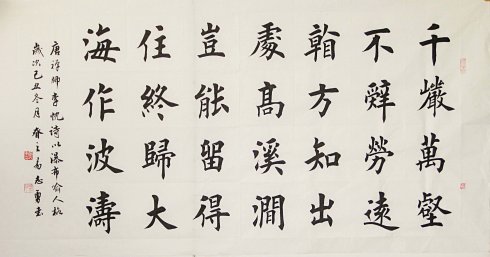 千巖萬壑
不辭勞遠
看方知出
處髙溪澗
豈能畱得
住終歸大
海作波濤
唐禅师李忱诗以瀑布俞人格
歲次己丑冬月